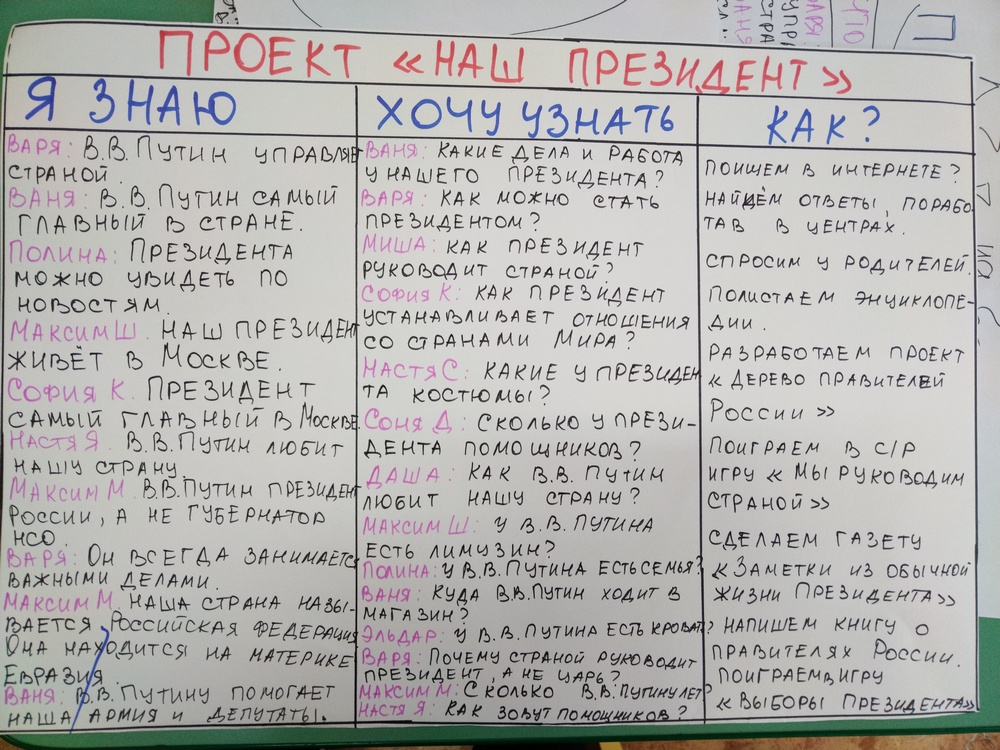 ПРОЕКТ «НАШ ПРЕЗИДЕНТ»
Я ЗНАЮ
ВАРЯ: В.В. ПУТИН УПРАВЛЯЕТ
СТРАНОЙ.
ВАНЯ: В.В. ПУТИН САМЫЙ
ГЛАВНЫЙ В СТРАНЕ.
ПОЛИНА: ПРЕЗИДЕНТА
МОЖНО УВИДЕТЬ ПО
НОВОСТЯМ.
МАКСИМ Ш. НАШ ПРЕЗИДЕНТ
ЖИВЁТ В МОСКВЕ.
СОФИЯ К. ПРЕЗИДЕНТ
САМЫЙ ГЛАВНЫЙ В МОСКВЕ.
НАСТЯ Я. В.В. ПУТИН ЛЮБИТ
НАШУ СТРАНУ.
МАКСИМ М. В.В. ПУТИН ПРЕЗИДЕНТ
РОССИИ, А НЕ ГУБЕРНАТОР
НСО.
ВАРЯ: ОН ВСЕГДА ЗАНИМАЕТСЯ
ВАЖНЫМИ ДЕЛАМИ.
МАКСИМ М. НАША СТРАНА НАЗЫ-
ВАЕТСЯ РОССИЙСКАЯ ФЕДЕРАЦИЯ
ОНА НАХОДИТСЯ НА МАТЕРИКЕ
ЕВРАЗИЯ.
ВАНЯ: В.В. ПУТИНУ ПОМОГАЕТ
НАША АРМИЯ И ДЕПУТАТЫ.
ХОЧУ УЗНАТЬ
ВАНЯ: КАКИЕ ДЕЛА И РАБОТА
У НАШЕГО ПРЕЗИДЕНТА?
ВАРЯ: КАК МОЖНО СТАТЬ
ПРЕЗИДЕНТОМ?
МИША: КАК ПРЕЗИДЕНТ
РУКОВОДИТ СТРАНОЙ?
СОФИЯ К: КАК ПРЕЗИДЕНТ
УСТАНАВЛИВАЕТ ОТНОШЕНИЯ
СО СТРАНАМИ МИРА?
НАСТЯ С: КАКИЕ У ПРЕЗИДЕН
ТА КОСТЮМЫ?
СОНЯ Д: СКОЛЬКО У ПРЕЗИ-
ДЕНТА ПОМОЩНИКОВ?
ДАША: КАК В.В. ПУТИН
ЛЮБИТ НАШУ СТРАНУ?
МАКСИМ Ш: У В.В. ПУТИНА
ЕСТЬ ЛИМУЗИН?
ПОЛИНА: У В.В. ПУТИНА ЕСТЬ СЕМЬЯ?
ВАНЯ: КУДА В.В. ПУТИН ХОДИТ В
МАГАЗИН?
ЭЛЬДАР: У В.В. ПУТИНА ЕСТЬ КРОВАТЬ?
ВАРЯ: ПОЧЕМУ СТРАНОЙ РУКОВОДИТ
ПРЕЗИДЕНТ, А НЕ ЦАРЬ?
МАКСИМ М: СКОЛЬКО В.В. ПУТИНУ ЛЕТ?
НАСТЯ Я: КАК ЗОВУТ ПОМОЩНИКОВ?
КАК?
ПОИЩЕМ В ИНТЕРНЕТЕ?
НАЙДЁМ ОТВЕТЫ, ПОРАБО-
ТАВ В ЦЕНТРАХ.
СПРОСИМ У РОДИТЕЛЕЙ.
ПОЛИСТАЕМ ЭНЦИКЛОПЕ-
ДИИ.
РАЗРАБОТАЕМ ПРОЕКТ
«ДЕРЕВО ПРАВИТЕЛЕЙ
РОССИИ»
ПОИГРАЕМ В С/Р
ИГРУ «МЫ РУКОВОДИМ
СТРАНОЙ»
СДЕЛАЕМ ГАЗЕТУ
«ЗАМЕТКИ ИЗ ОБЫЧНОЙ
ЖИЗНИ ПРЕЗИДЕНТА»
НАПИШЕМ КНИГУ О
ПРАВИТЕЛЯХ РОССИИ.
ПОИГРАЕМ В ИГРУ
«ВЫБОРЫ ПРЕЗИДЕНТА»